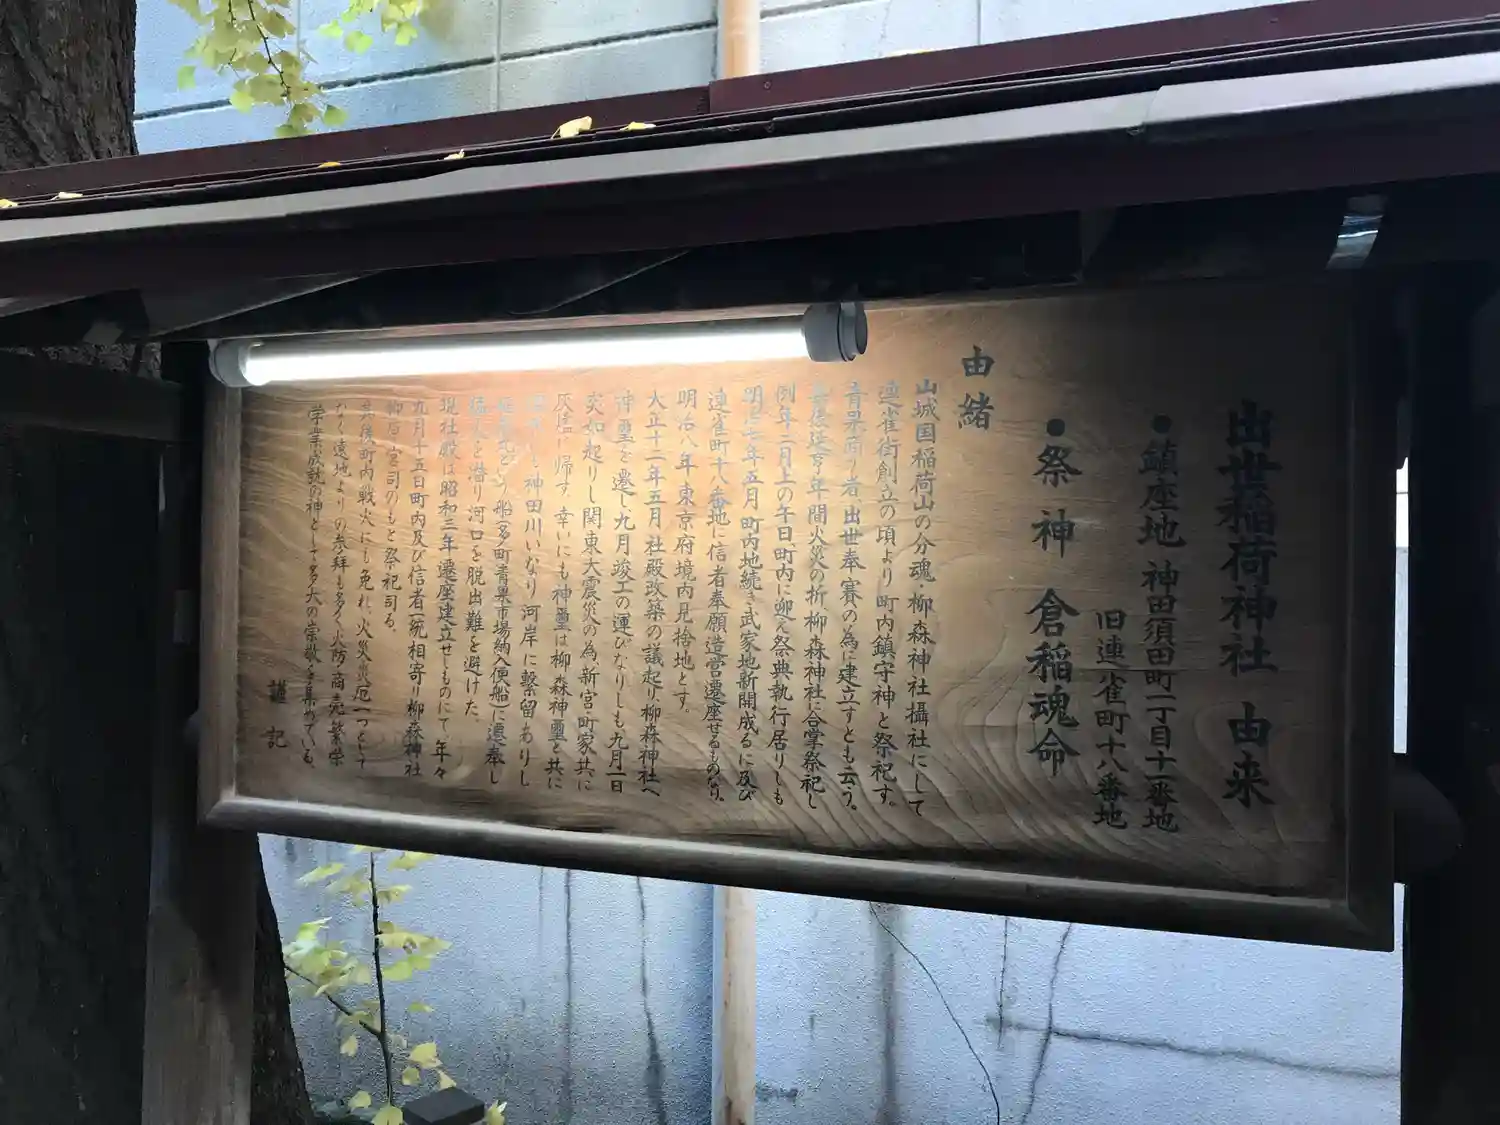 出世稲荷神社 由来
●鎮座地 神田須田町一丁目十一番地
旧連雀町十八番地
●祭 神 倉稲魂命
由緒
山城国稲荷山の分魂、柳森神社攝社にして
連雀街創立の頃より町内鎮守神と祭祀す。
青果商の者出世奉賽の為に建立すとも云う。
其後延亨年間火災の折、柳森神社に合掌祭祀し
例年二月上の午日、町内に迎え祭典執行居りしも
明治七年五月 町内地続き武家地新開成るに及び
連雀町十八番地に信者奉願造営遷座せるものなり。
明治八年東京府境内見捨地とす。
大正十二年五月社殿改築の議起り柳森神社へ
神璽を遷し九月竣工の運びなりしも九月一日
突如起りし関東大震災の為、新宮町家共に
灰燼に帰す、幸いにも神璽は柳森神璽と共に
神田川いなり河岸に繋留ありし
船(多町青果市場納入便船)に遷奉し
と潜り河口を脱出難を避けた。
現社殿は昭和三年遷座建立せしものにて、年々
九月十五日町内及び信者一統相寄り柳森神社
柳原宮司のもと祭祀司る。
其後町内戦火にも免れ、火災災厄一つとして
なく遠地よりの参拝も多く火防、商売繁栄
学業成就の神として多大の崇敬を集めている。
謹記